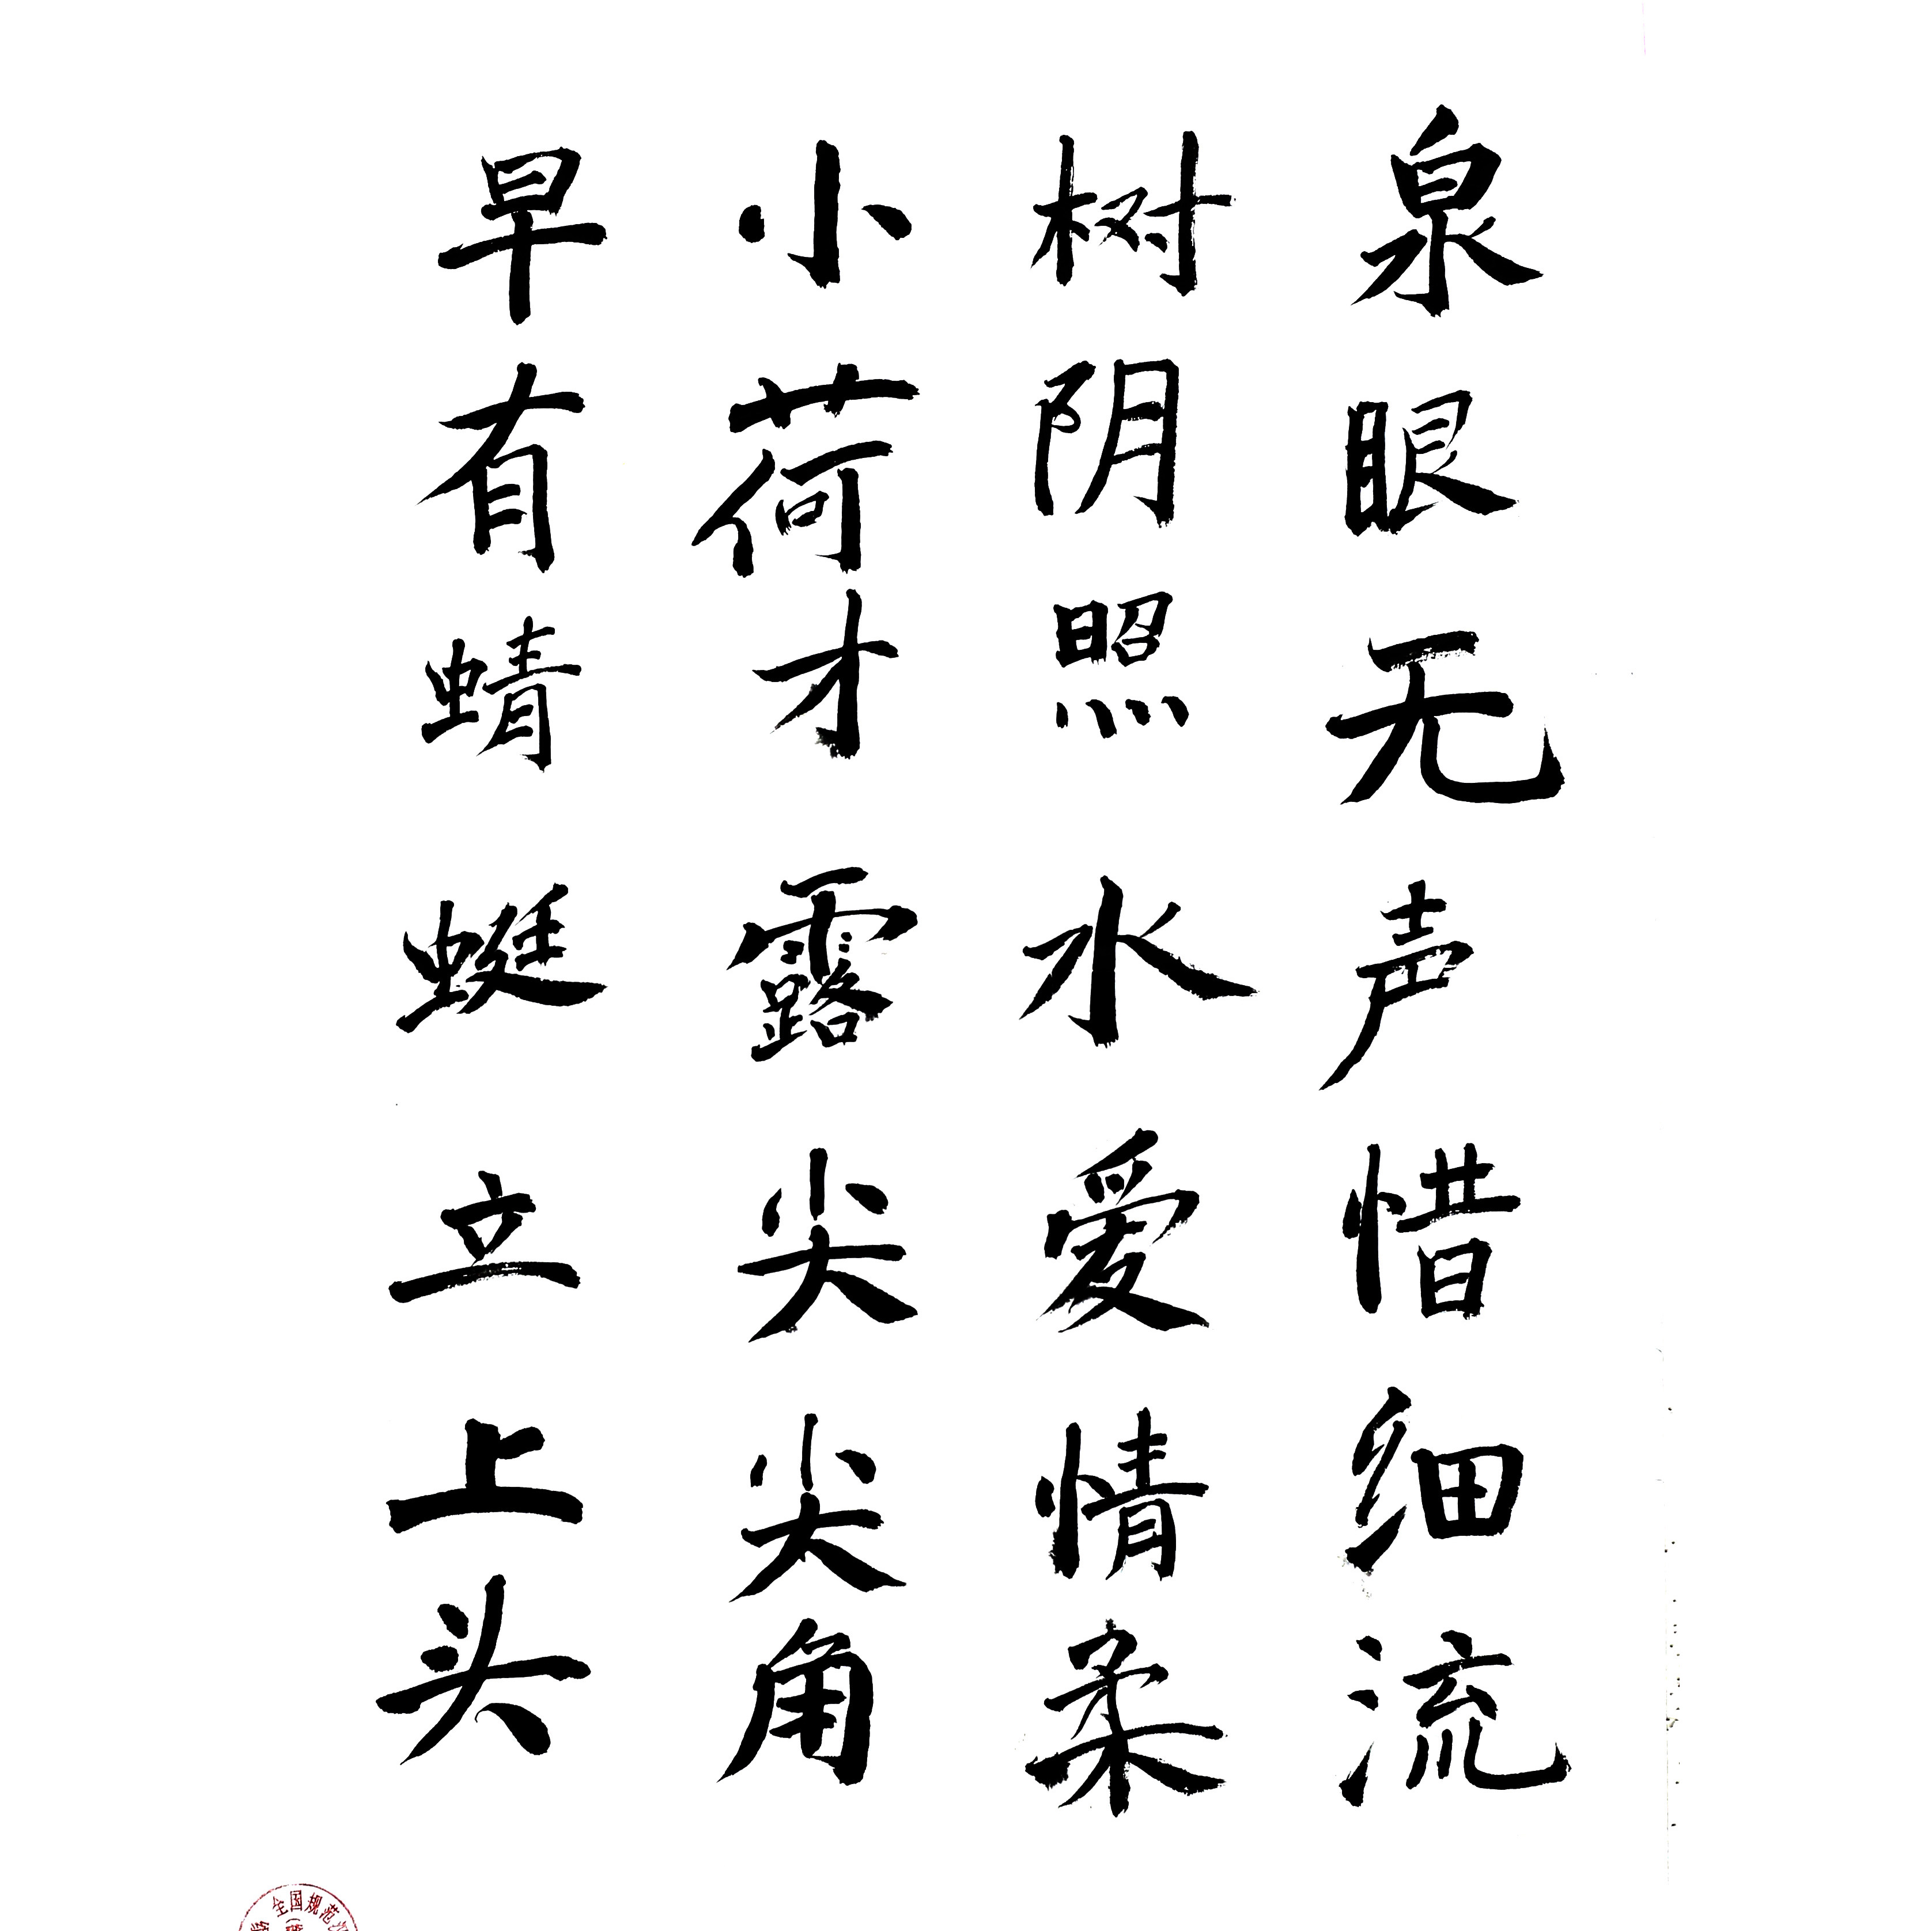 泉眼无声惜细流
树阴照水爱情柔
小荷才露尖尖角
早有蜻蜓立上头
国规范